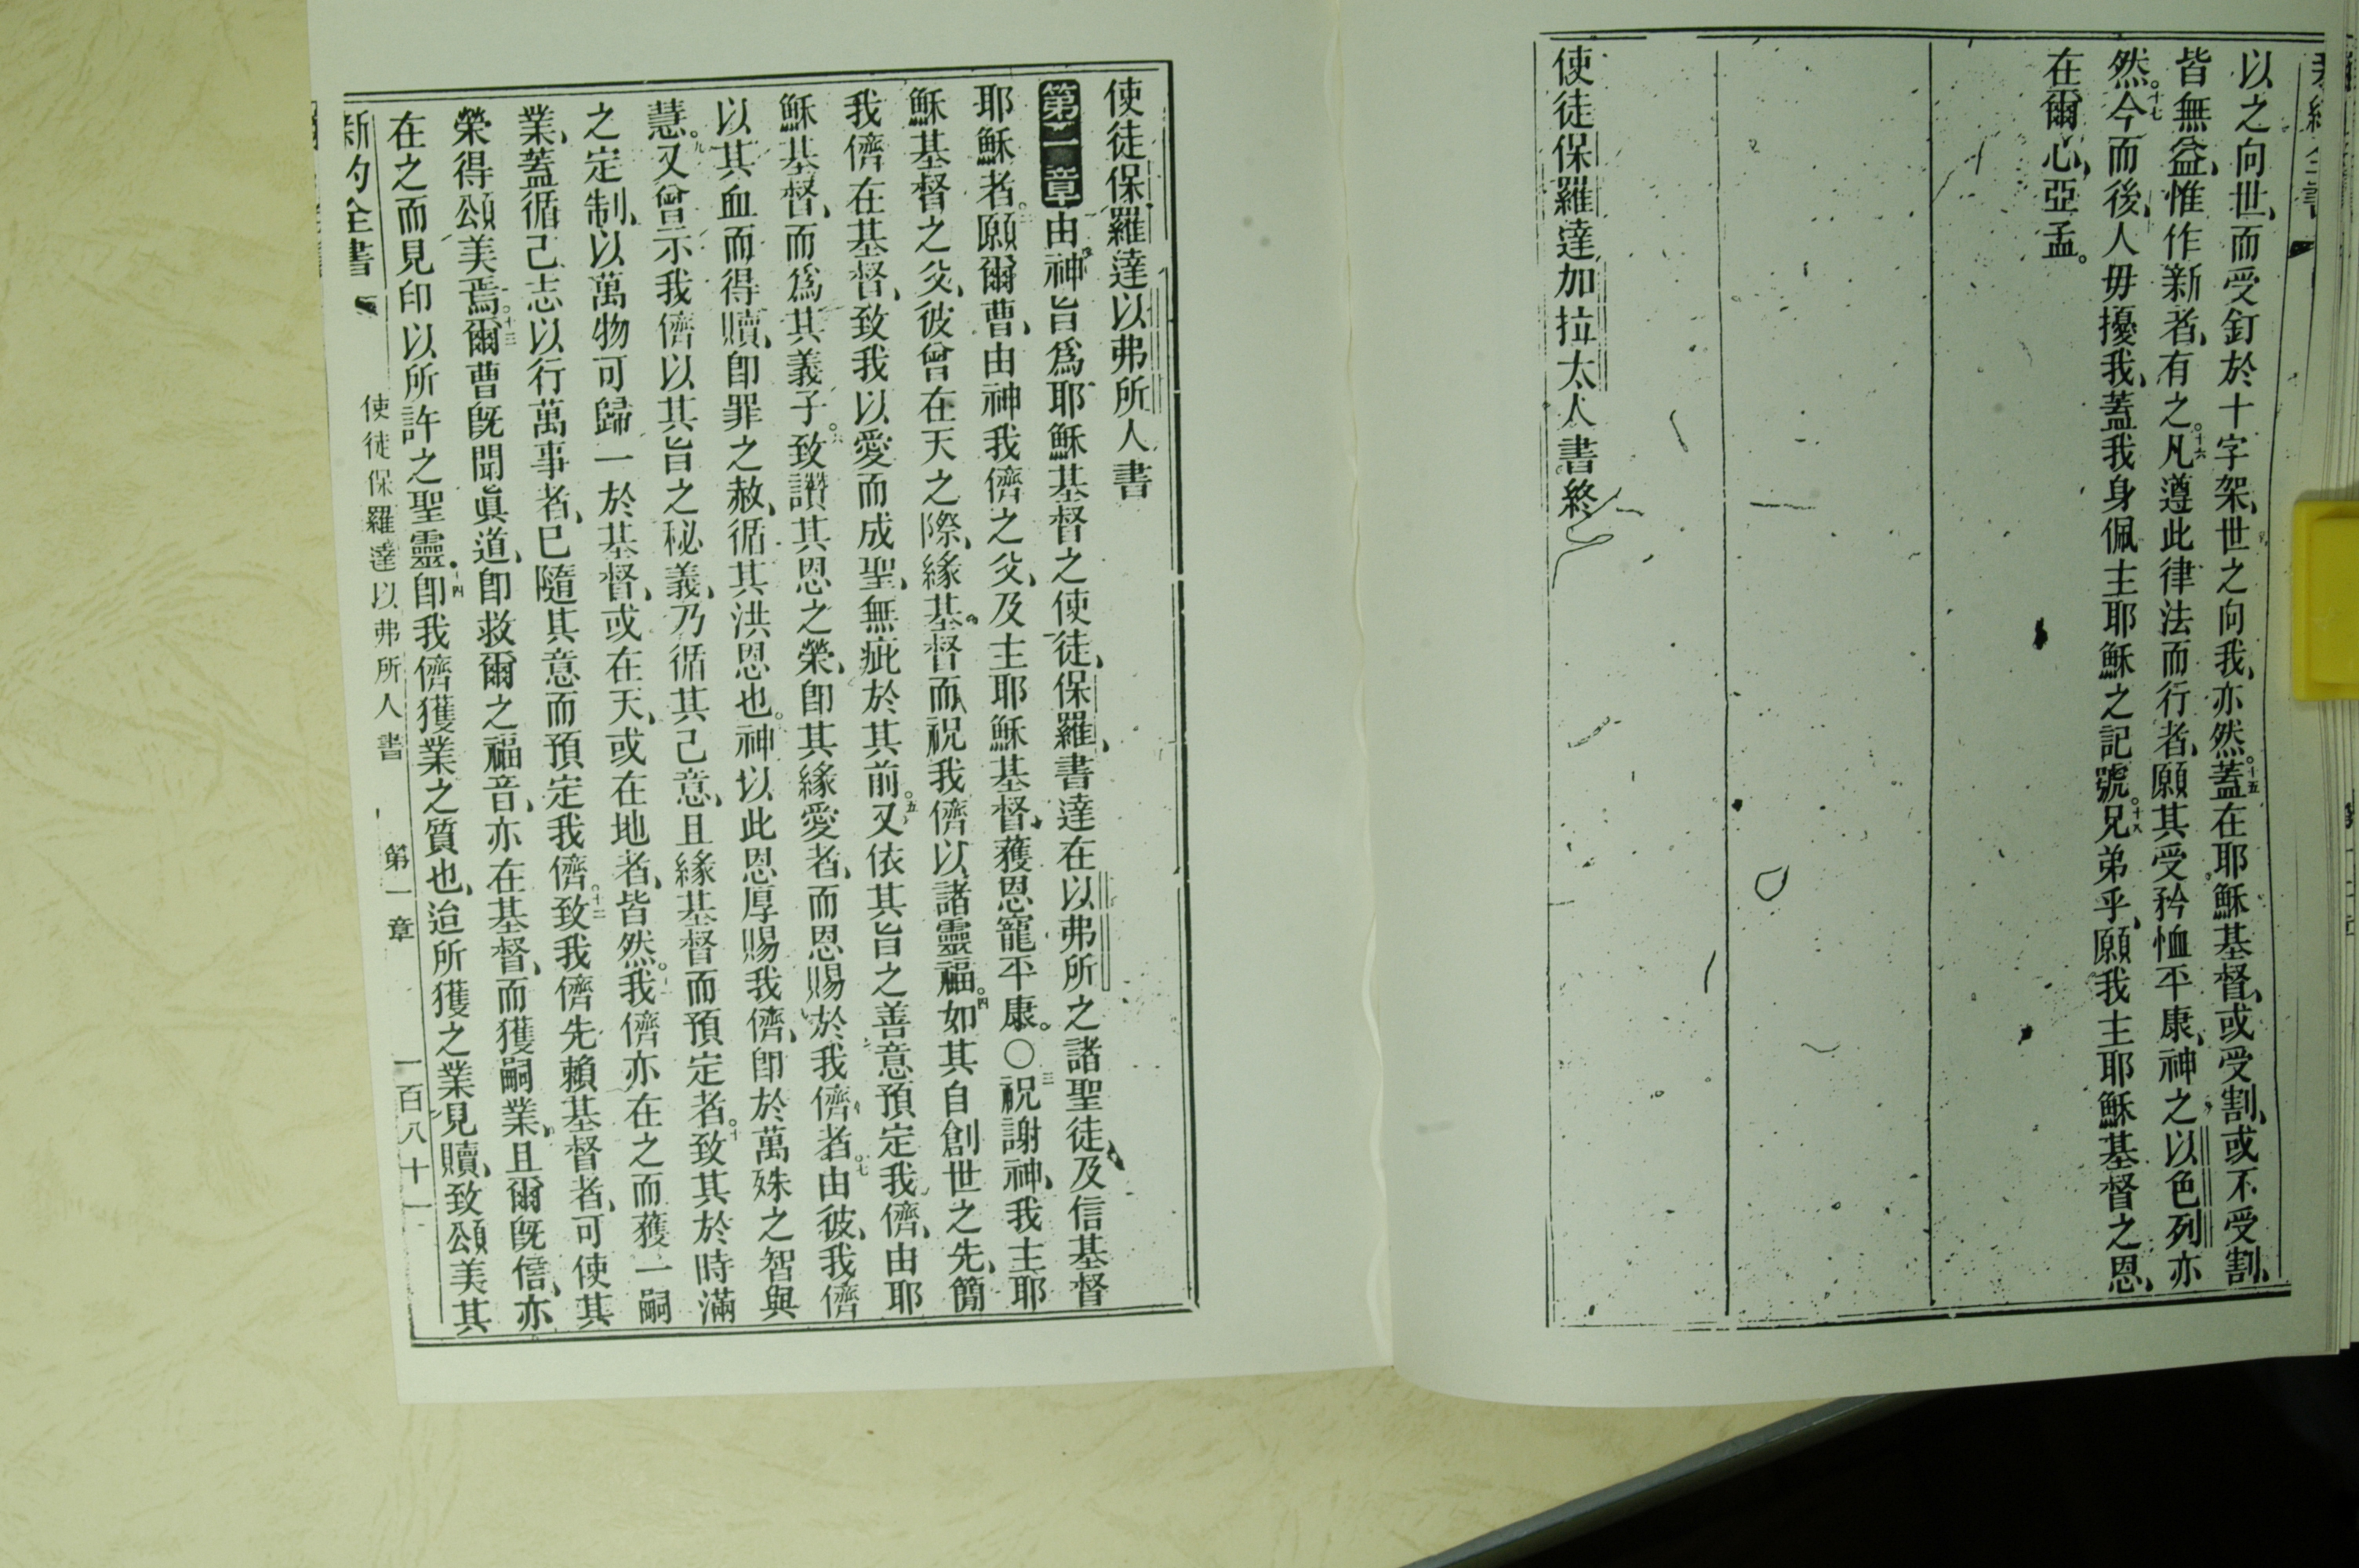 以之向世、而受釘於十字架、世之向我、亦然。十五蓋在耶穌基督、或受割、或不受割、
皆無益、惟作新者、有之。十六凡遵此律法而行者、願其受矜恤平康、神之以色列亦
然。十七今而後、人毋擾我、蓋我身佩主耶穌之記號。十八兄弟乎、願我主耶穌基督之恩、
在爾心、亞孟。
使徒保羅達加拉太人書終
使徒保羅達以弗所人書
第一章由神旨爲耶穌基督之使徒、保羅、書達在以弗所之諸聖徒、及信基督
耶穌者。二願爾曹、由神我儕之父、及主耶穌基督、獲恩寵平康。〇三祝謝神、我主耶
穌基督之父、彼曾在天之際、緣基督而祝我儕以諸靈福。四如其自創世之先、簡
我儕在基督、致我以愛而成聖、無疵於其前。五又依其旨之善意預定我儕、由耶
穌基督、而爲其義子。六致讚其恩之榮、卽其緣愛者、而恩賜於我儕者。七由彼、我儕
以其血而得贖、卽罪之赦、循其洪恩也。神以此恩厚賜我儕、卽於萬殊之智與
慧。九又曾示我儕以其旨之秘義、乃循其己意、且緣基督而預定者。十致其於時滿
之定制、以萬物可歸一於基督、或在天、或在地者、皆然。我儕亦在之而獲一嗣
業、蓋循己志以行萬事者、已隨其意而預定我儕。十二致我儕先賴基督者、可使其
榮得頌美焉。十三爾曹旣聞眞道、卽救爾之福音、亦在基督、而獲嗣業、且爾旣信、亦
在之而見印以所許之聖靈。十四卽我儕獲業之質也、迨所獲之業見贖、致頌美其
新約全書
使徒保羅達以弗所人書
第一章
一百八十一